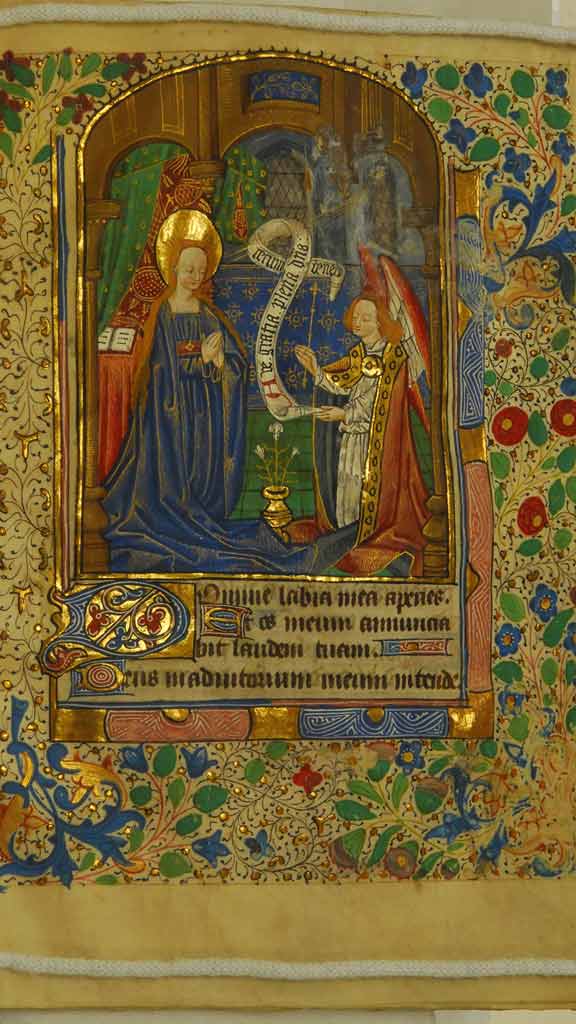 Ave gratia plena dns
tecum
Domine labia mea aperies.
Et os meum annuncia
bit laudem tuam.
Deus in adiutorium meum intende